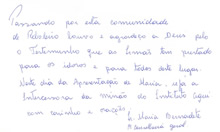 Passando por esta comunidade
de Reboleiro louvo e agradeço a Deus pelo
o Testemunho que as Irmãs têm prestado
para os idosos e para todos deste lugar.
Neste dia da Apresentação de Maria, seja a
Intercessora da missão do Instituto aqui
com carinho e oração,
Ir. Maria Bernadete